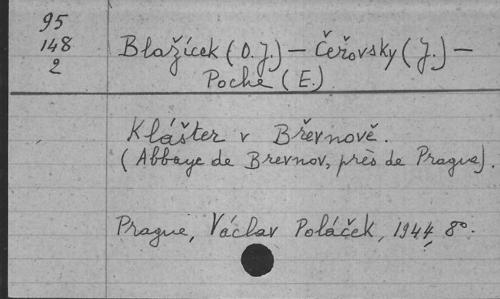 95
148
2
Blažícek (O.J.) — Čeřovsky (J.) —
Poche (E.)
Klášter v Břevnově.
(Abbaye de Brevnov, près de Prague).
Prague, Václav Poláček, 1944, 8°.